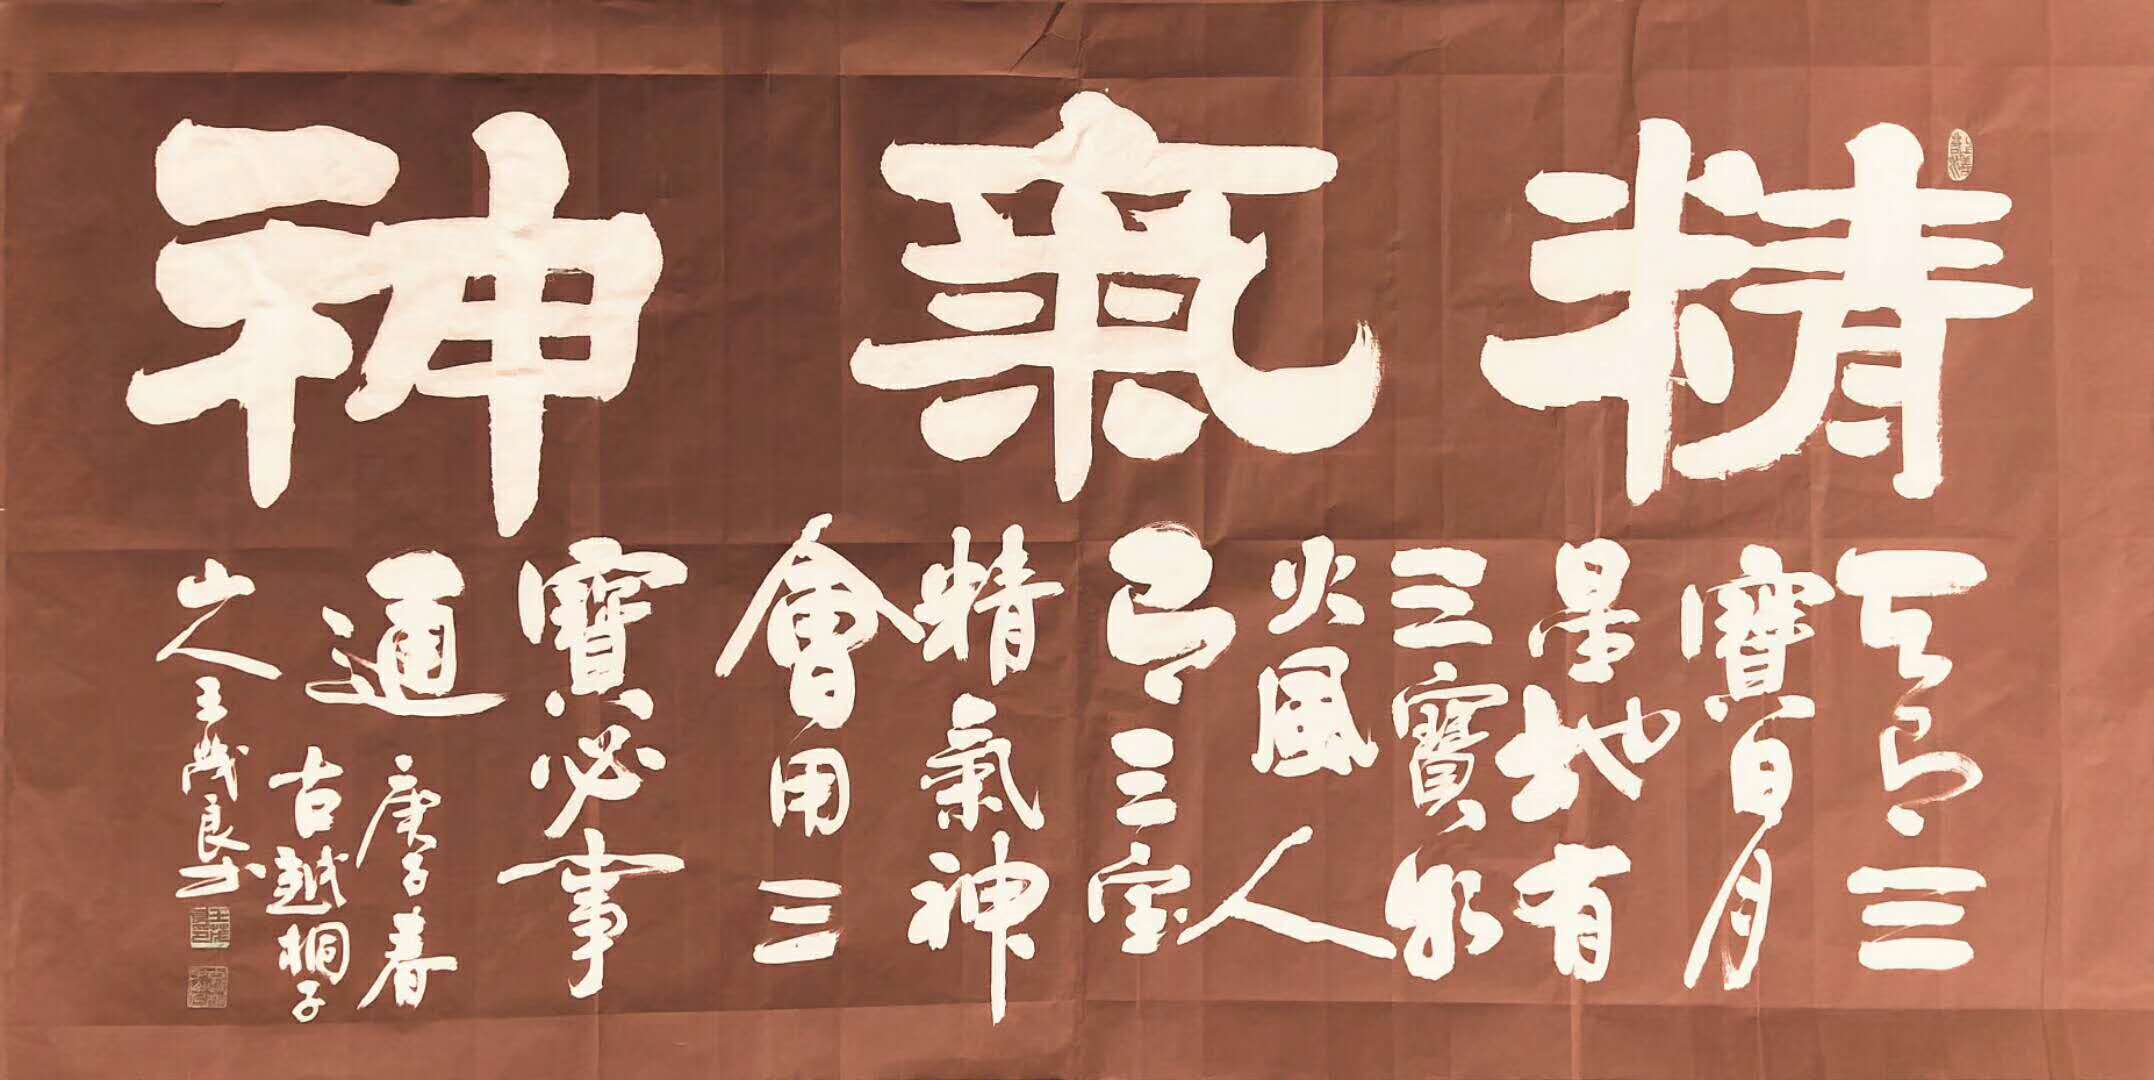 精氣神
天有三
寶日月
星地有
三寶水
火風人
有三宝
精氣神
會用三
寶必事
通
庚子春
古越桐子
山人王茂良书